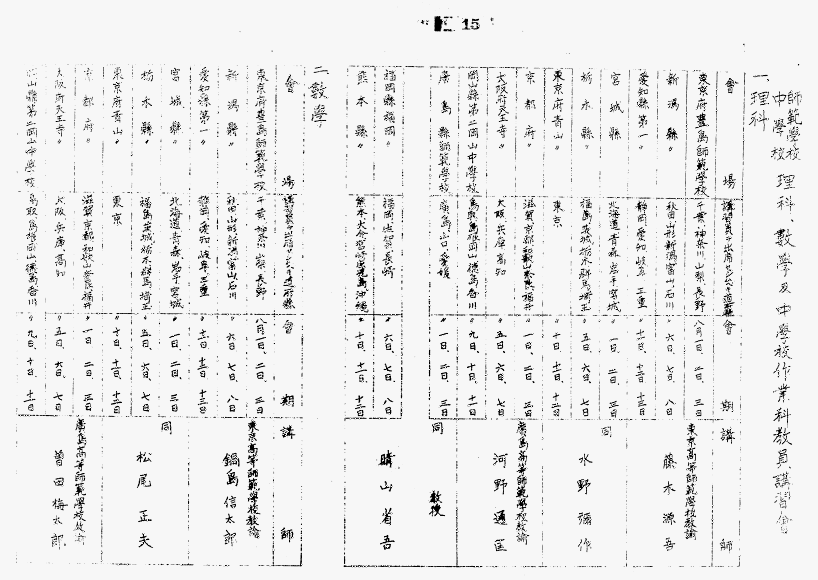 15
師範學校
中學校 理科、數學及中學校作業科教員講習會
一、理科
會場
講習員ヲ出席セシムベキ道府縣
會期
講師
東京府豊島師範學校
千葉、神奈川、山梨、長野
八月一日、二日、三日
東京高等師範學校教諭
藤木源吾
新潟縣〃
秋田、山形、新潟、富山、石川
〃六日、七日、八日
愛知縣第一〃
靜岡、愛知、岐阜、三重
〃十一日、十二日、十三日
宮城縣〃
北海道、青森、岩手、宮城
〃一日、二日、三日
同
水野彌作
栃木縣〃
福島、茨城、栃木、群馬、埼玉
〃五日、六日、七日
東京府青山〃
東京
〃十日、十一日、十二日
京都府〃
滋賀、京都、和歌山、奈良、福井
〃一日、二日、三日
廣島高等師範學校教諭
河野通匡
大阪府天王寺〃
大阪、兵庫、高知
〃五日、六日、七日
岡山縣第二岡山中學校
鳥取、島根、岡山、徳島、香川
〃九日、十日、十一日
廣島縣師範學校
廣島、山口、愛媛
〃一日、二日、三日
同 教授
晴山省吾
福岡縣福岡〃
福岡、佐賀、長崎
〃六日、七日、八日
熊本縣〃
熊本、大分、宮崎、鹿児島、沖縄
〃十日、十一日、十二日
二、數學
會場
講習員ヲ出席セシムベキ道府縣
會期
講師
東京府豊島師範學校
千葉、神奈川、山梨、長野
八月一日、二日、三日
東京高等師範學校教諭
鍋島信太郎
新潟縣〃
秋田、山形、新潟、富山、石川
〃六日、七日、八日
愛知縣第一〃
靜岡、愛知、岐阜、三重
〃十一日、十二日、十三日
宮城縣〃
北海道、青森、岩手、宮城
〃一日、二日、三日
同
松尾正夫
栃木縣〃
福島、茨城、栃木、群馬、埼玉
〃五日、六日、七日
東京府青山〃
東京
〃十日、十一日、十二日
京都府〃
滋賀、京都、和歌山、奈良、福井
〃一日、二日、三日
廣島高等師範學校教諭
曽田梅太郎
大阪府天王寺〃
大阪、兵庫、高知
〃五日、六日、七日
岡山縣第二岡山中學校
鳥取、島根、岡山、徳島、香川
〃九日、十日、十一日